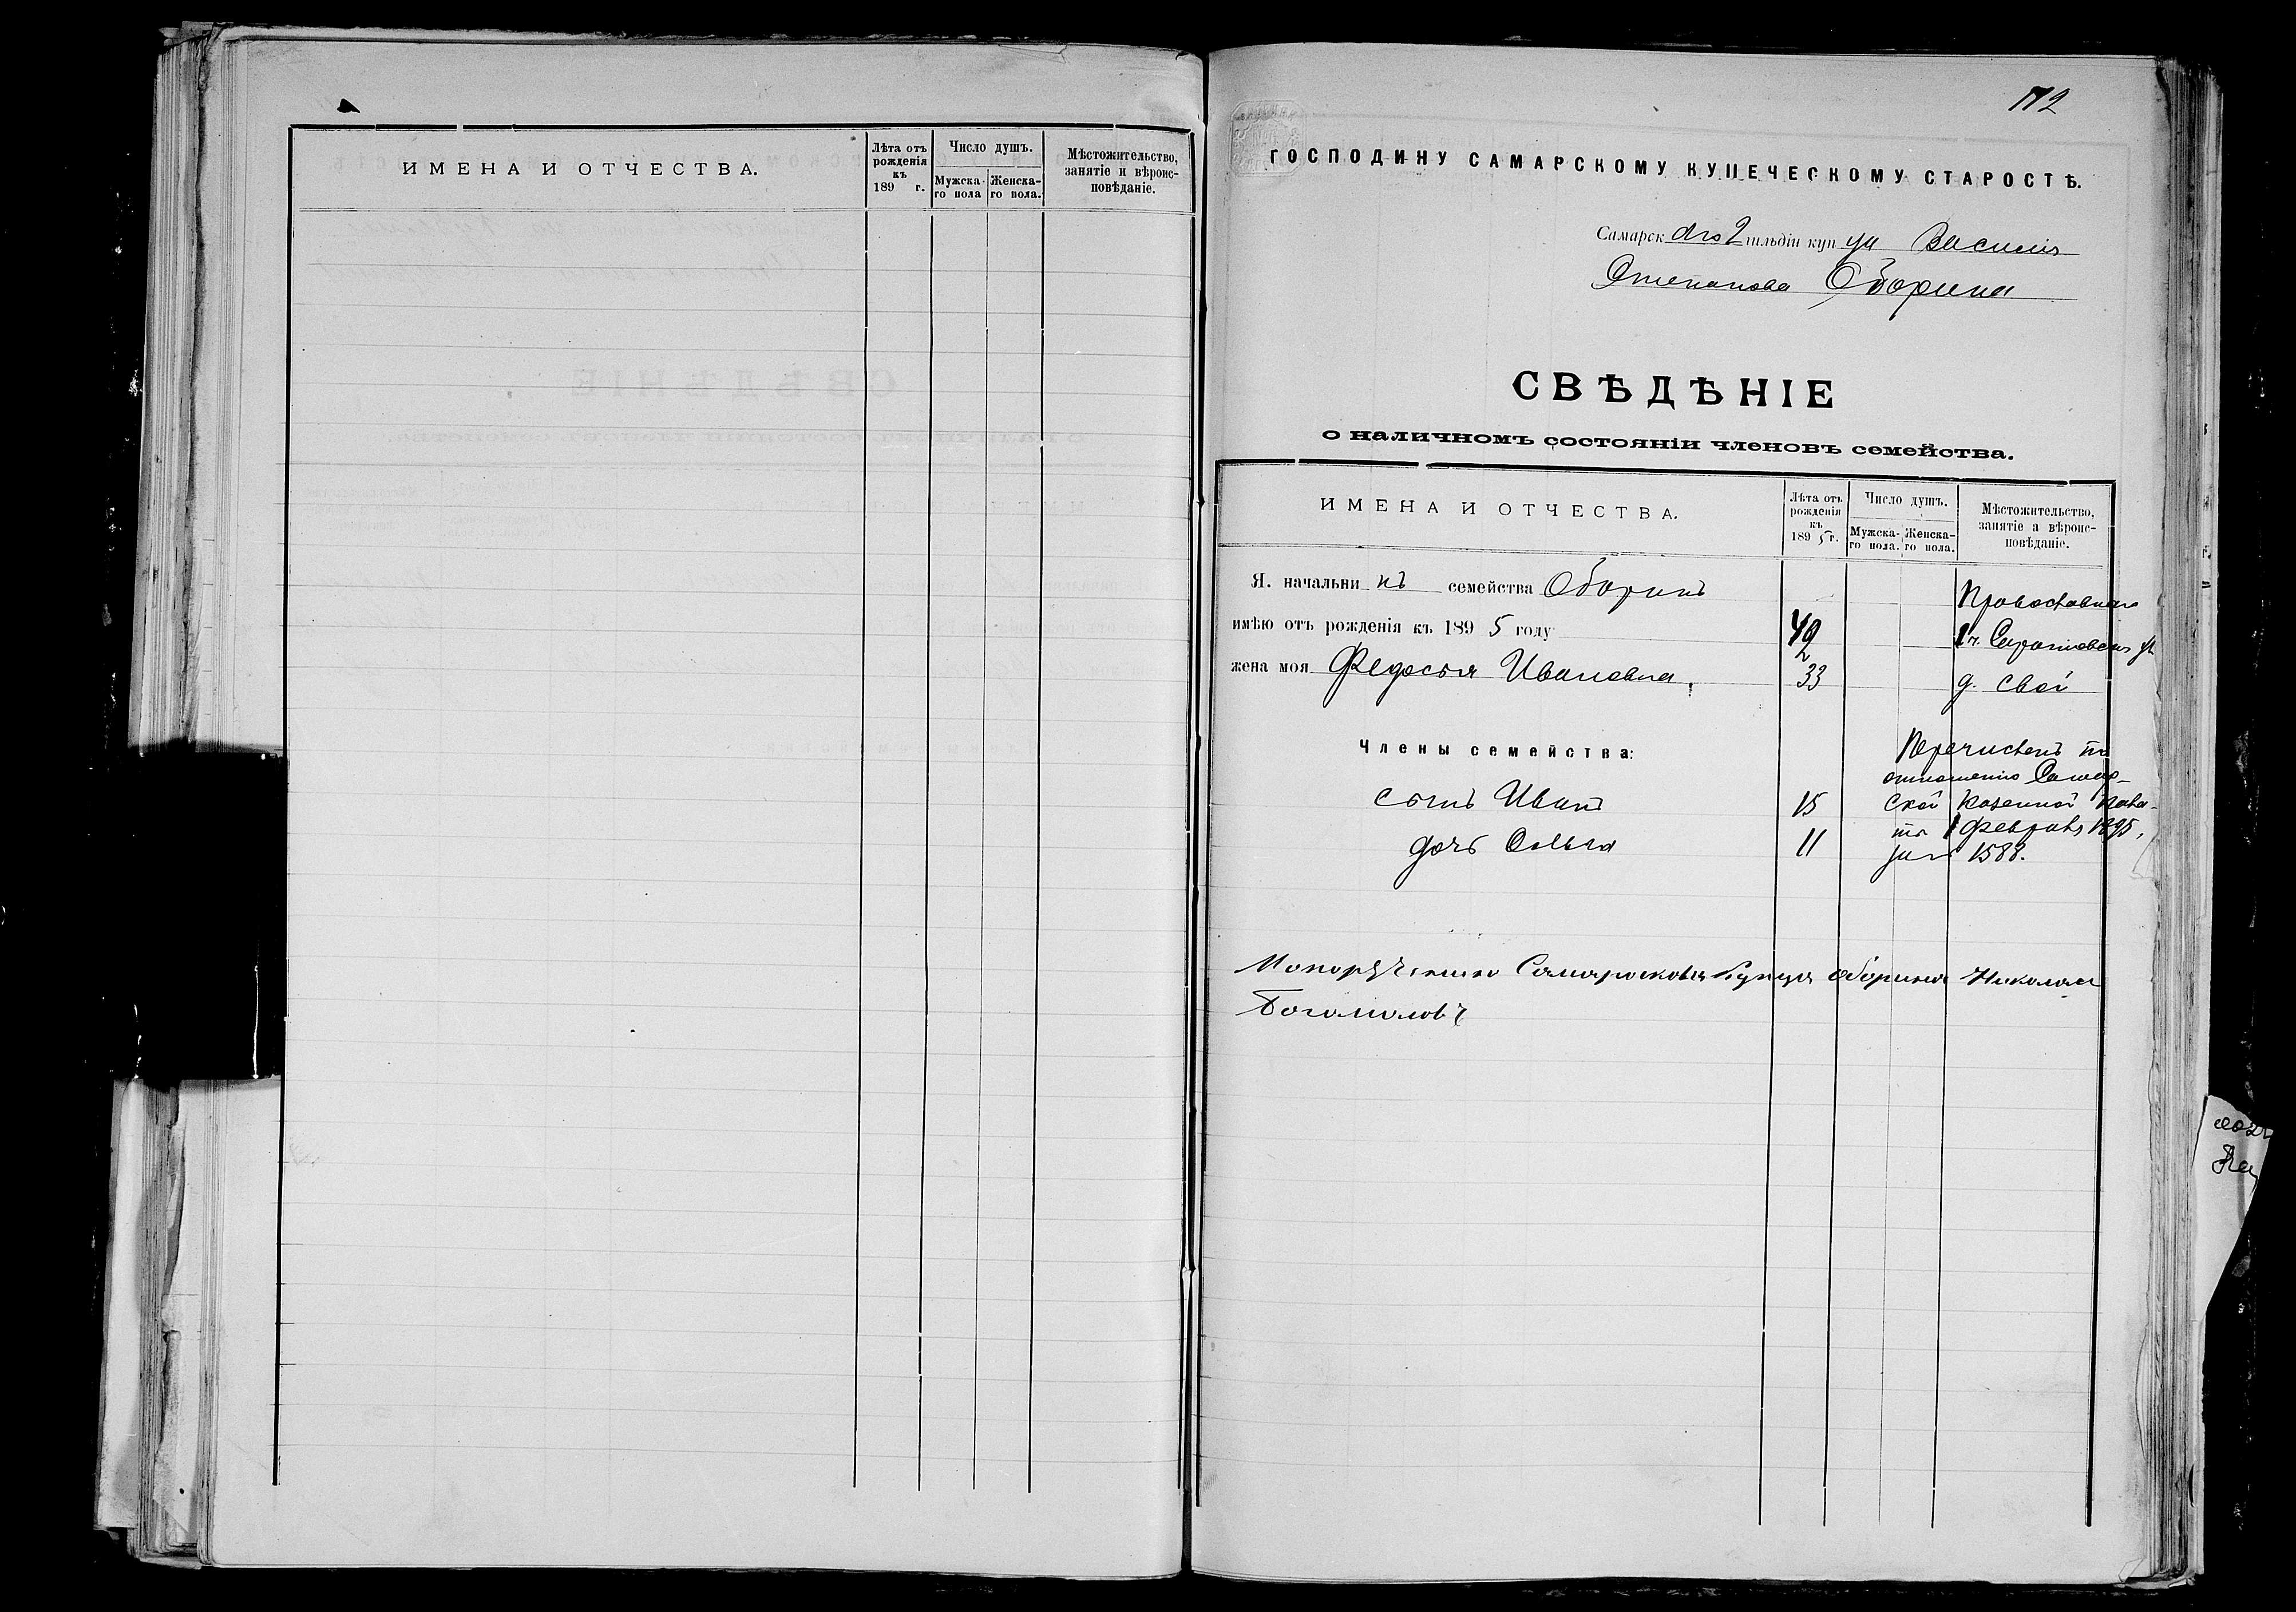 ИМЕНА И ОТЧЕСТВА.
Лѣта отъ рожденія къ 189 г.
Число душъ.
Мужска-го пола
Женска-го пола.
Мѣстожительство, занятіе и вѣроис-повѣданіе.
172
ГОСПОДИНУ САМАРСКОМУ КУПЕЧЕСКОМУ СТАРОСТѢ.
Самарскаго 2 гильдіи купца Василія
Степанова Оборина
СВѢДѢНІЕ
о наличномъ состояніи членовъ семейства.
ИМЕНА И ОТЧЕСТВА.
Лѣта отъ рожденія къ 1895 г.
Число душъ.
Мужска-го пола.
Женска-го пола.
Мѣстожительство, занятіе а вѣроис-повѣданіе.
Я. начальникъ семейства Оборинъ
Православнаго
имѣю отъ рожденія къ 1895 году
1 ч. Саратовская ул
жена моя Федосья Ивановна, 33 д. свой
Члены семейства:
Перечисленъ по
отношенію Самар-
сынъ Иванъ 15 ской Казенной Пала-
ты 1 Февраля 1895,
дочь Ольга 11 за № 1588.
Попорученію Самарскова Купца Оборина Николай
Богомоловъ